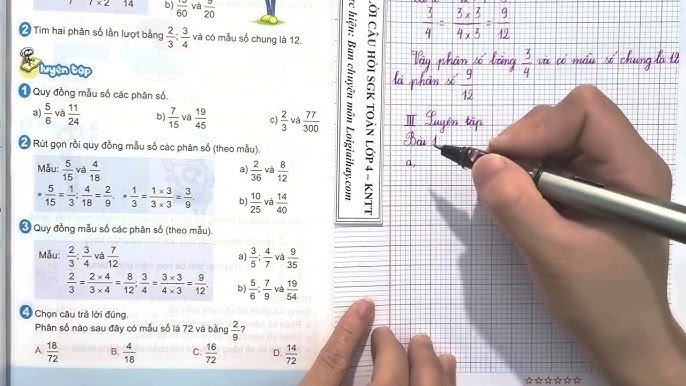 60 và 20
7 7 × 2 14
2 Tìm hai phân số lần lượt bằng 2/3; 3/4 và có mẫu số chung là 12.
Luyện tập
1 Quy đồng mẫu số các phân số.
a) 5/6 và 11/24 b) 7/15 và 19/45 c) 2/3 và 77/300
2 Rút gọn rồi quy đồng mẫu số các phân số (theo mẫu).
Mẫu: 5/15 và 4/18
• 5/15 = 1/3; 4/18 = 2/9. • 1/3 = 1 × 3/3 × 3 = 3/9.
a) 2/36 và 8/12
b) 10/25 và 14/40
3 Quy đồng mẫu số các phân số (theo mẫu).
Mẫu: 2/3; 3/4 và 7/12
2/3 = 2 × 4/3 × 4 = 8/12; 3/4 = 3 × 3/4 × 3 = 9/12.
a) 3/5; 4/7 và 9/35
b) 5/6; 7/9 và 19/54
4 Chọn câu trả lời đúng.
Phân số nào sau đây có mẫu số là 72 và bằng 2/9?
A. 18/72 B. 4/18 C. 16/72 D. 14/72
LỜI CÂU HỎI SGK TOÁN LỚP 4 – KNTT
hiện: Ban chuyên môn Loigiaihay.com
3/4 = 3 × 3/4 × 3 = 9/12
Vậy phân số bằng 3/4 và có mẫu số chung là 12
là phân số 9/12
III Luyện tập
Bài 1
a,